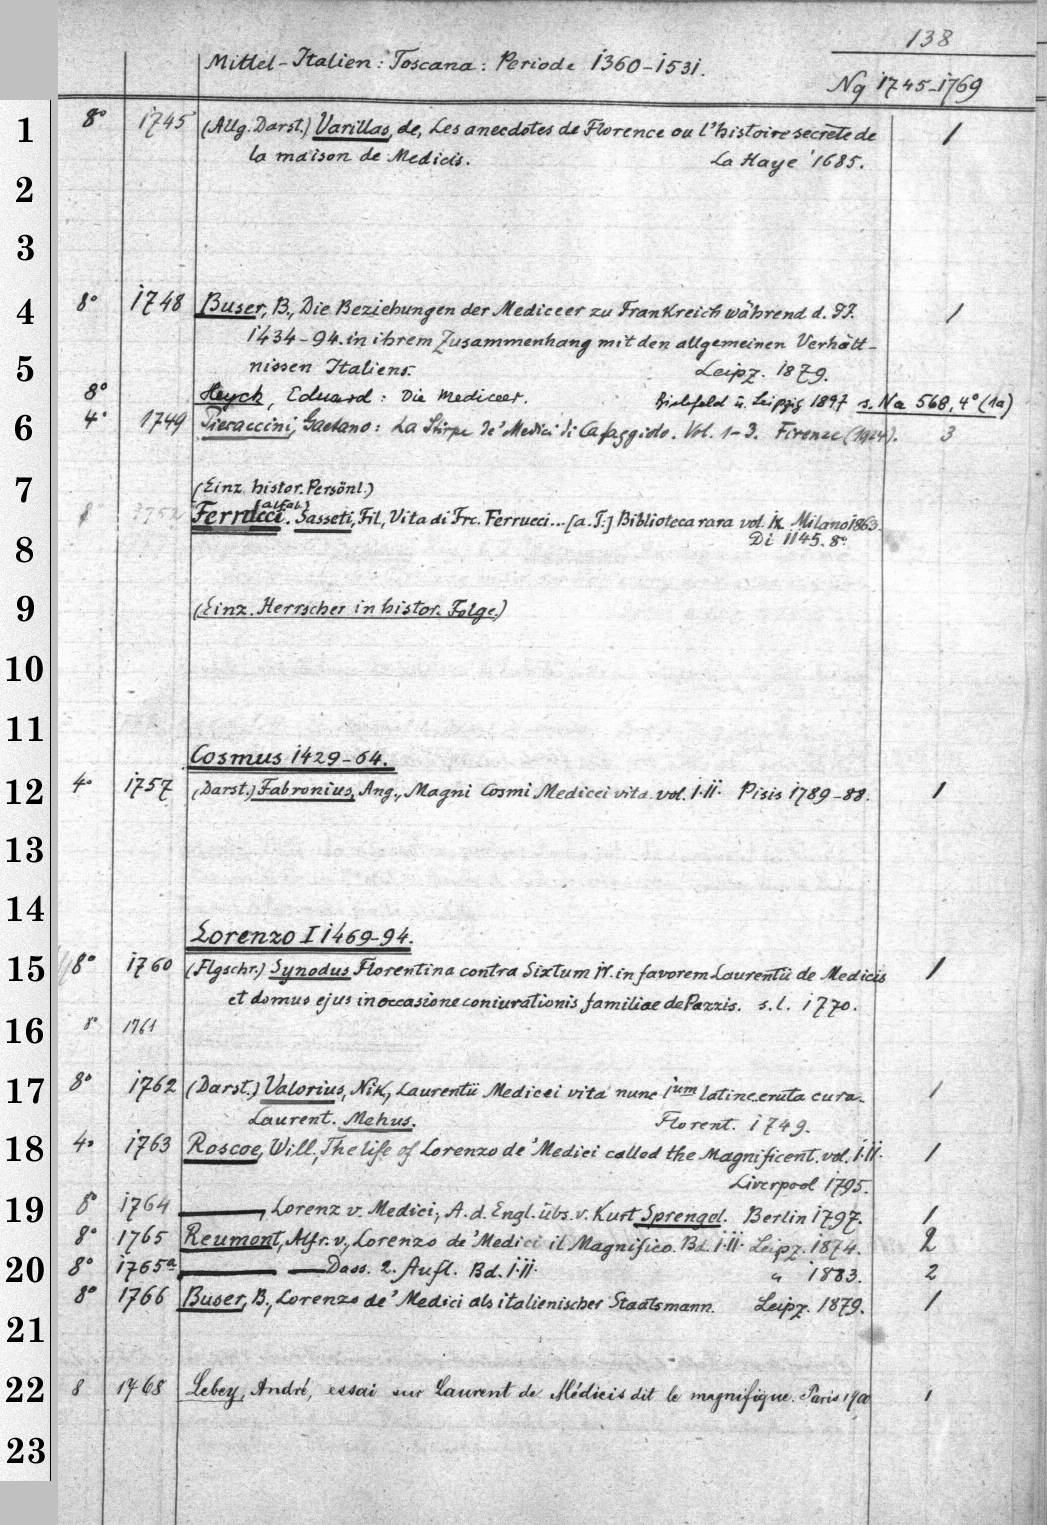 138
Mittel-Italien: Toscana: Periode 1360-1531.
Nq 1745-1769
1 8° 1745 (Allg. Darst.) Varillas, de, Les anecdotes de Florence ou l'histoire secrète de 1
la maison de Medicis. La Haye 1685.
2
3
4 8° 1748 Buser, B., Die Beziehungen der Mediceer zu Frankreich während d. JJ. 1
1434-94. in ihrem Zusammenhang mit den allgemeinen Verhält-
5 nissen Italiens. Leipz. 1879.
8° Heyck, Eduard: Die Mediceer. Bielefeld u. Leipzig 1897 s. Na 568, 4° (1a)
6 4° 1749 Pieraccini, Gaetano: La Stirpe de' Medici di Cafaggiolo. Vol. 1-3. Firenze (1924). 3
7 (Einz. histor. Persönl.)
(alfab.)
8° 1752 Ferrucci. Sasseti, Fil, Vita di Frc. Ferrucci... [a. T.:] Biblioteca rara vol. IX Milano 1863.
8 Di 1145. 8°.
9 (Einz. Herrscher in histor. Folge.)
10
11
Cosmus 1429-64.
12 4° 1757 (Darst.) Fabronius, Ang., Magni Cosmi Medicei vita. vol. I.II. Pisis 1789-88. 1
13
14
Lorenzo I 1469-94.
15 8° 1760 (Flgschr.) Synodus Florentina contra Sixtum IV. in favorem Laurentii de Medicis 1
et domus ejus in occasione coniurationis familiae de Pazzis. s.l. 1770.
16 8° 1761
17 8° 1762 (Darst.) Valorius, Nik., Laurentii Medicei vita nunc 1um latine eruta cura. 1
Laurent. Mehus. Florent. 1749.
18 4° 1763 Roscoe, Will., The life of Lorenzo de' Medici called the Magnificent. vol. I.II. 1
Liverpool 1795.
19 8° 1764 ——, Lorenz v. Medici, A. d. Engl. übs. v. Kurt Sprengel. Berlin 1797. 1
8° 1765 Reumont, Alfr. v., Lorenzo de' Medici il Magnifico. Bd. I.II. Leipz. 1874. 2
20 8° 1765a —— —— Dass. 2. Aufl. Bd. I.II. " 1883. 2
8° 1766 Buser, B., Lorenzo de' Medici als italienischer Staatsmann. Leipz. 1879. 1
21
22 8 1768 Lebey, André, essai sur Laurent de Médicis dit le magnifique. Paris 1900 1
23